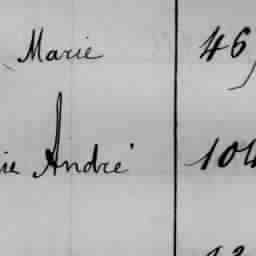 Marie 46
ie André 104